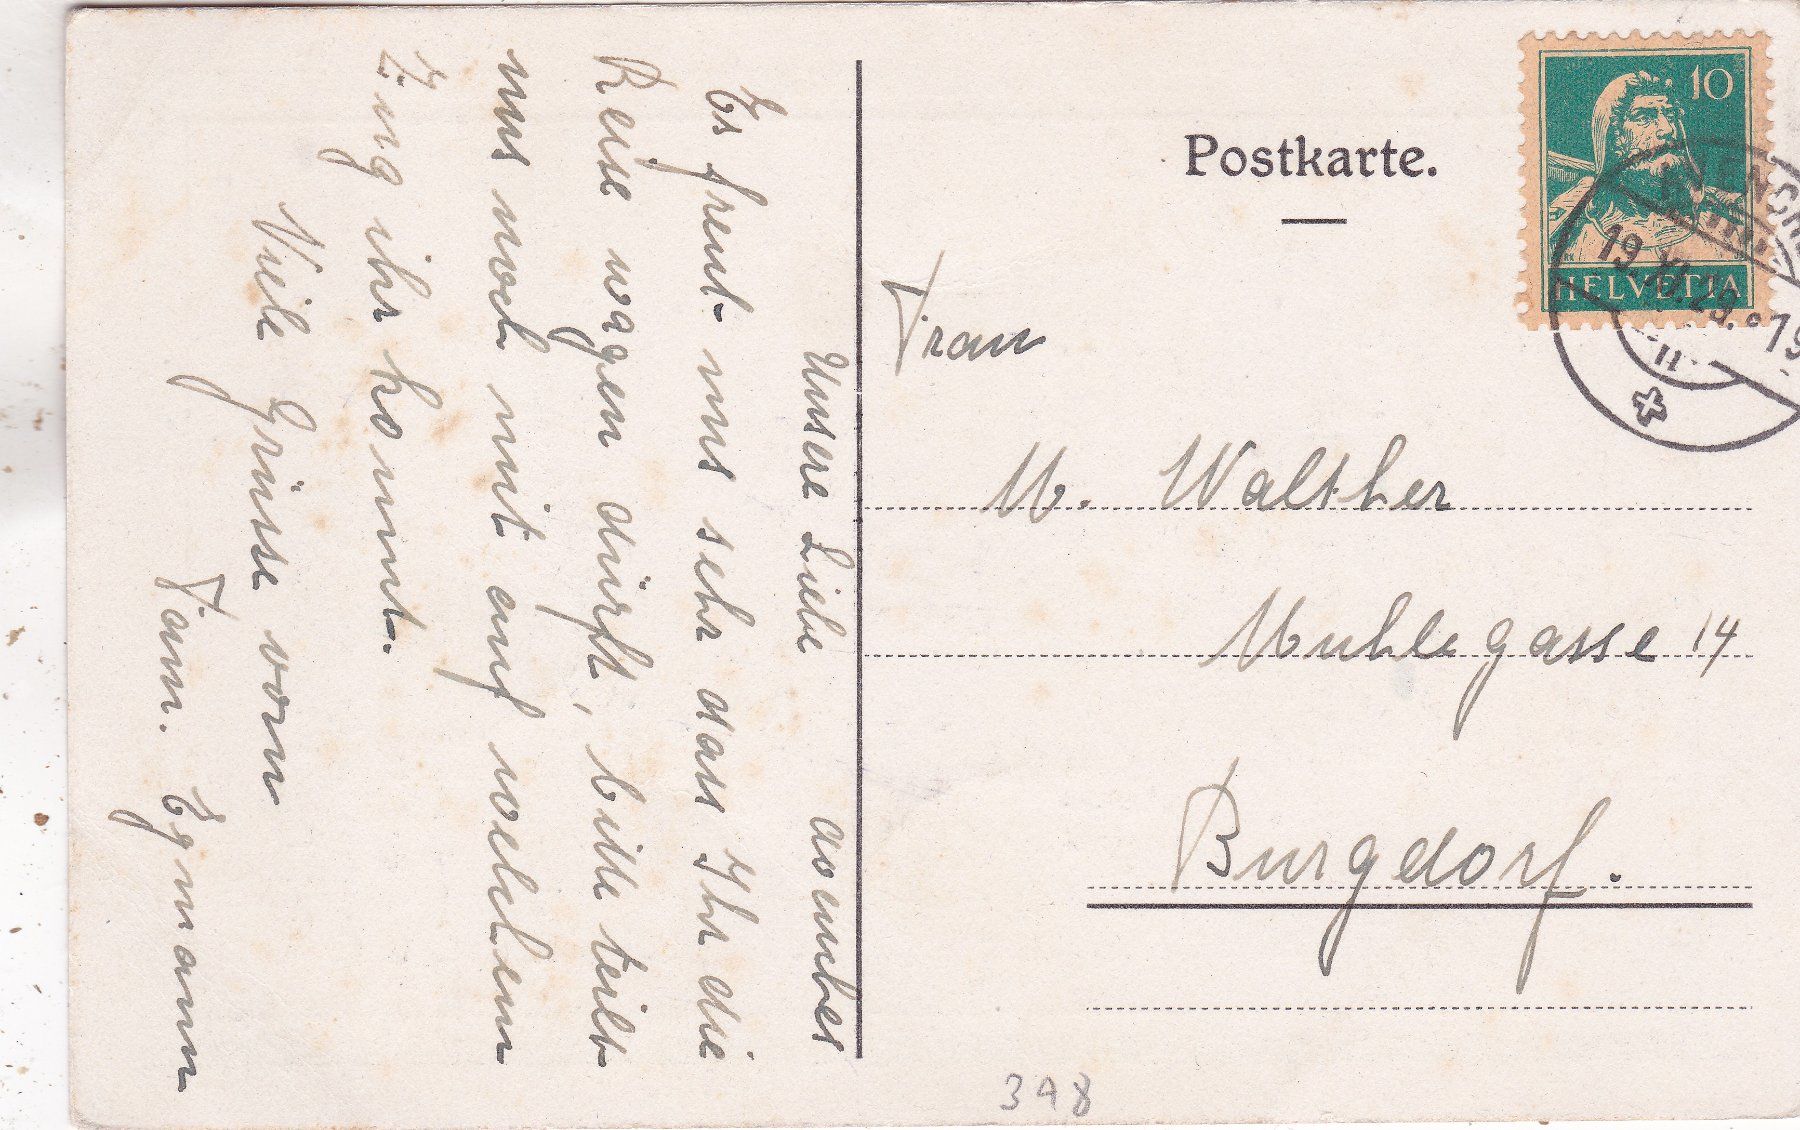 Postkarte.
10
HELVETIA
19. XI. 29. 19
Frau
M. Walther
Muhlegasse 14
Burgdorf.
Unsere Liebe
Es freut uns sehr dass Ihr die
Reise wagen dürft, bitte teilt
uns noch mit auf welchem
Zug ihr kommt.
Viele Grüsse von
Fam. Egmann
398